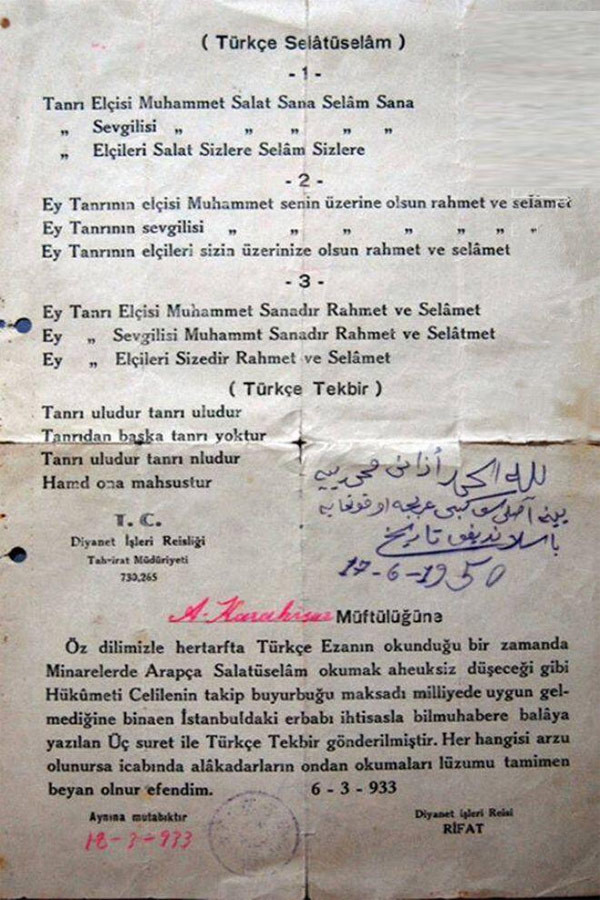 ( Türkçe Selâtüselâm )
- 1 -
Tanrı Elçisi Muhammet Salat Sana Selâm Sana
„ Sevgilisi „ „ „ „ „
„ Elçileri Salat Sizlere Selâm Sizlere
- 2 -
Ey Tanrının elçisi Muhammet senin üzerine olsun rahmet ve selâmet
Ey Tanrının sevgilisi „ „ „ „ „ „ „
Ey Tanrının elçileri sizin üzerinize olsun rahmet ve selâmet
- 3 -
Ey Tanrı Elçisi Muhammet Sanadır Rahmet ve Selâmet
Ey „ Sevgilisi Muhammt Sanadır Rahmet ve Selâtmet
Ey „ Elçileri Sizedir Rahmet ve Selâmet
( Türkçe Tekbir )
Tanrı uludur tanrı uludur
Tanrıdan başka tanrı yoktur
Tanrı uludur tanrı nludur
Hamd ona mahsustur
لله الحمد أذان محمدييه
يينه اصلى كبى عربجه اوقونمايه
باشلانديغى تاريخ
17-6-1950
T. C.
Diyanet İşleri Reisliği
Tahrirat Müdüriyeti
730,265
A-Karahisar Müftülüğüne
Öz dilimizle hertarfta Türkçe Ezanın okunduğu bir zamanda
Minarelerde Arapça Salatüselâm okumak aheuksiz düşeceği gibi
Hükûmeti Celilenin takip buyurbuğu maksadı milliyede uygun gel-
mediğine binaen İstanbuldaki erbabı ihtisasla bilmuhabere balâya
yazılan Üç suret ile Türkçe Tekbir gönderilmiştir. Her hangisi arzu
olunursa icabında alâkadarların ondan okumaları lüzumu tamimen
beyan olnur efendim. 6 - 3 - 933
Aynına mutabıktır
18-3-933
Diyanet işleri Reisi
RİFAT